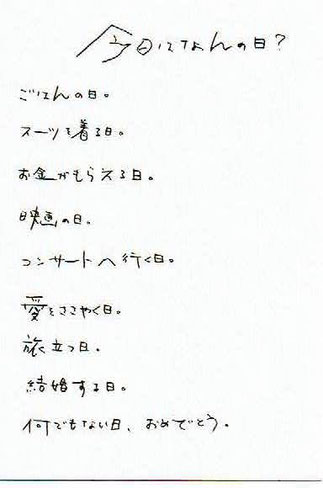 今日はなんの日？
ごはんの日。
スーツを着る日。
お金がもらえる日。
映画の日。
コンサートへ行く日。
愛をささやく日。
旅立つ日。
結婚する日。
何でもない日、おめでとう。